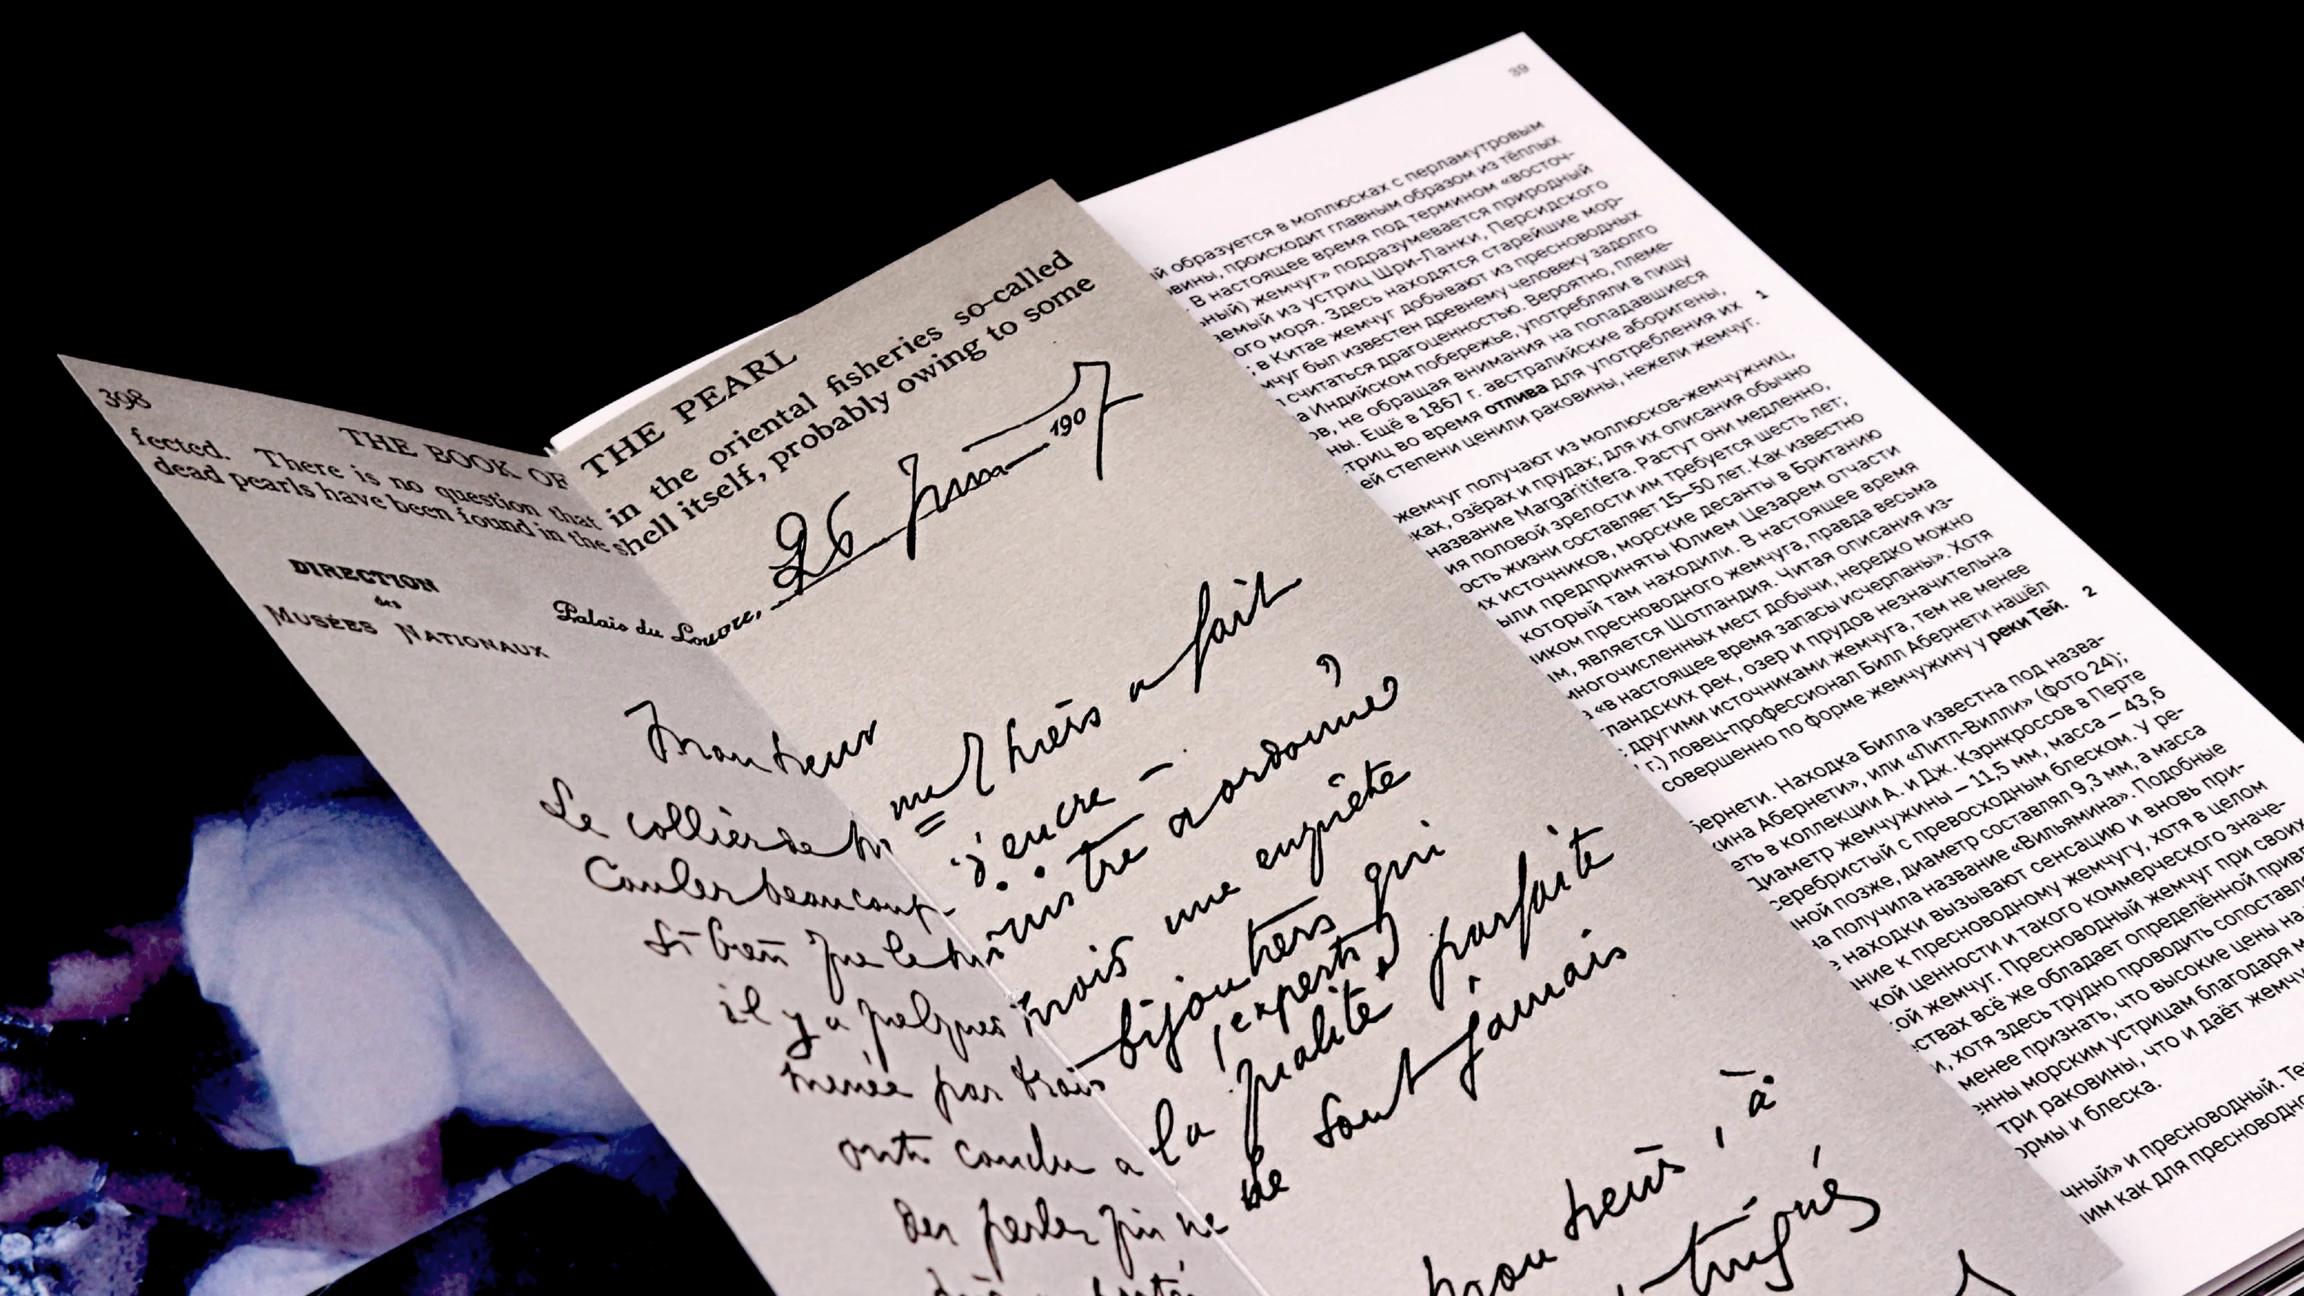 398
THE BOOK OF THE PEARL
fected. There is no question that in the oriental fisheries so-called
dead pearls have been found in the shell itself, probably owing to some
DIRECTION
des
MUSÉES NATIONAUX
Palais du Louvre, 26 1907
Monsieur
Le collier de Mr Thiers a fait
Couler beaucoup d'encre
si bien que le ministre a ordonné,
il y a quelques mois une enquête
menée par trois bijoutiers qui
(experts)
ont conclu a la qualité parfaite
des perles qui ne se sont jamais
39
й образуется в моллюсках с перламутровым
овины, происходит главным образом из тёплых
В настоящее время под термином «восточ-
ный) жемчуг» подразумевается природный
аемый из устриц Шри-Ланки, Персидского
ого моря. Здесь находятся старейшие мор-
в Китае жемчуг добывают из пресноводных
мчуг был известен древнему человеку задолго
считаться драгоценностью. Вероятно, племе-
а Индийском побережье, употребляли в пищу
ов, не обращая внимания на попадавшиеся
ны. Ещё в 1867 г. австралийские аборигены,
триц во время отлива для употребления их 1
ей степени ценили раковины, нежели жемчуг.
жемчуг получают из моллюсков-жемчужниц,
ках, озёрах и прудах; для их описания обычно
название Margaritifera. Растут они медленно,
ия половой зрелости им требуется шесть лет;
ость жизни составляет 15–50 лет. Как известно
их источников, морские десанты в Британию
ыли предприняты Юлием Цезарем отчасти
который там находили. В настоящее время
иком пресноводного жемчуга, правда весьма
м, является Шотландия. Читая описания из-
многочисленных мест добычи, нередко можно
«в настоящее время запасы исчерпаны». Хотя
тландских рек, озер и прудов незначительна
с другими источниками жемчуга, тем не менее
г.) ловец-профессионал Билл Абернети нашёл
совершенно по форме жемчужину у реки Тей. 2
бернети. Находка Билла известна под назва-
ина Абернети», или «Литл-Вилли» (фото 24);
еть в коллекции А. и Дж. Кэрнкроссов в Перте
Диаметр жемчужины – 11,5 мм, масса – 43,6
серебристый с превосходным блеском. У ре-
ной позже, диаметр составлял 9,3 мм, а масса
на получила название «Вильямина». Подобные
е находки вызывают сенсацию и вновь при-
ание к пресноводному жемчугу, хотя в целом
кой ценности и такого коммерческого значе-
ой жемчуг. Пресноводный жемчуг при своих
ествах всё же обладает определённой привл
и, хотя здесь трудно проводить сопоставле
менее признать, что высокие цены на
енны морским устрицам благодаря
три раковины, что и даёт жемчу
ормы и блеска.
чный» и пресноводный. Те
им как для пресноводно